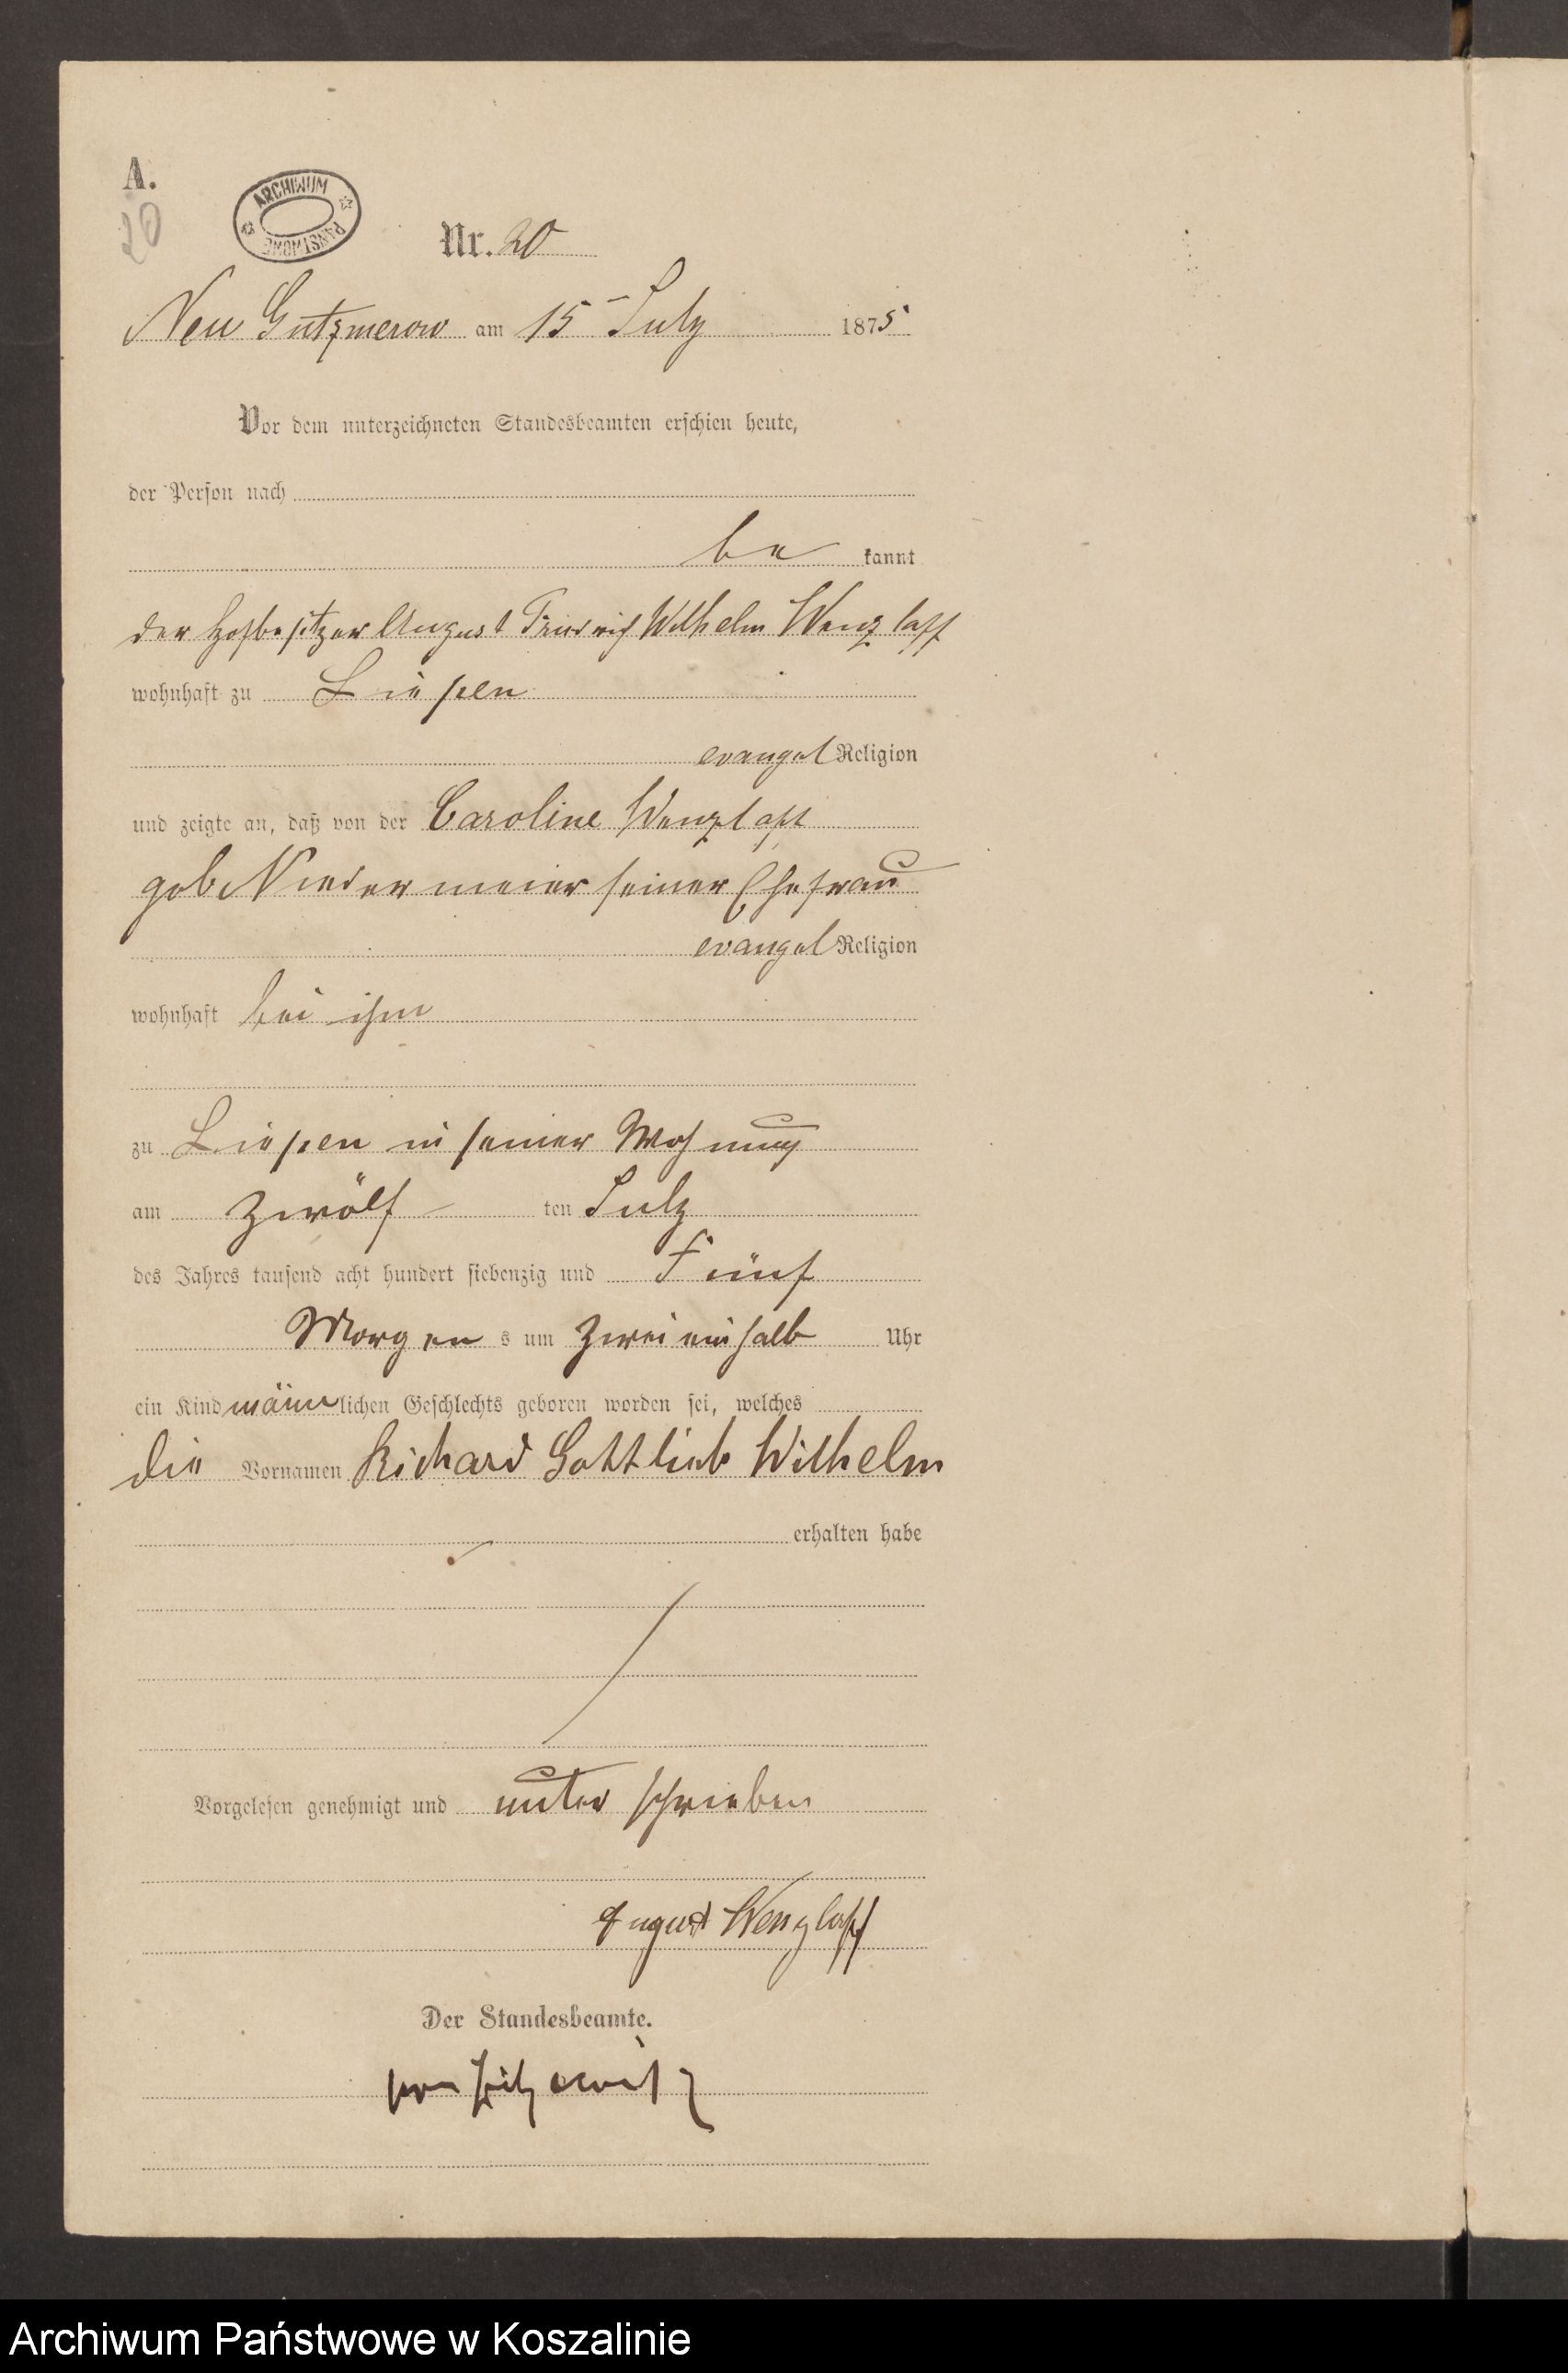 A.
20
ARCHIWUM PAŃSTWOWE
Nr. 20
Neu Gutzmerow am 15 July 1875
Vor dem unterzeichneten Standesbeamten erschien heute,
der Person nach
be kannt
der Hofbesitzer August Friedrich Wilhelm Wenzlaff
wohnhaft zu Liepen
evangel Religion
und zeigte an, daß von der Caroline Wenzlaff
geb. Niedermeier seiner Ehefrau
evangel Religion
wohnhaft bei ihm
zu Liepen in seiner Wohnung
am zwölf ten July
des Jahres tausend acht hundert siebenzig und Fünf
Morgen s um zwei ein halb Uhr
ein Kind männlichen Geschlechts geboren worden sei, welches
die Vornamen Richard Gottlieb Wilhelm
erhalten habe
Vorgelesen genehmigt und unterschrieben
August Wenzlaff
Der Standesbeamte.
von
Archiwum Państwowe w Koszalinie